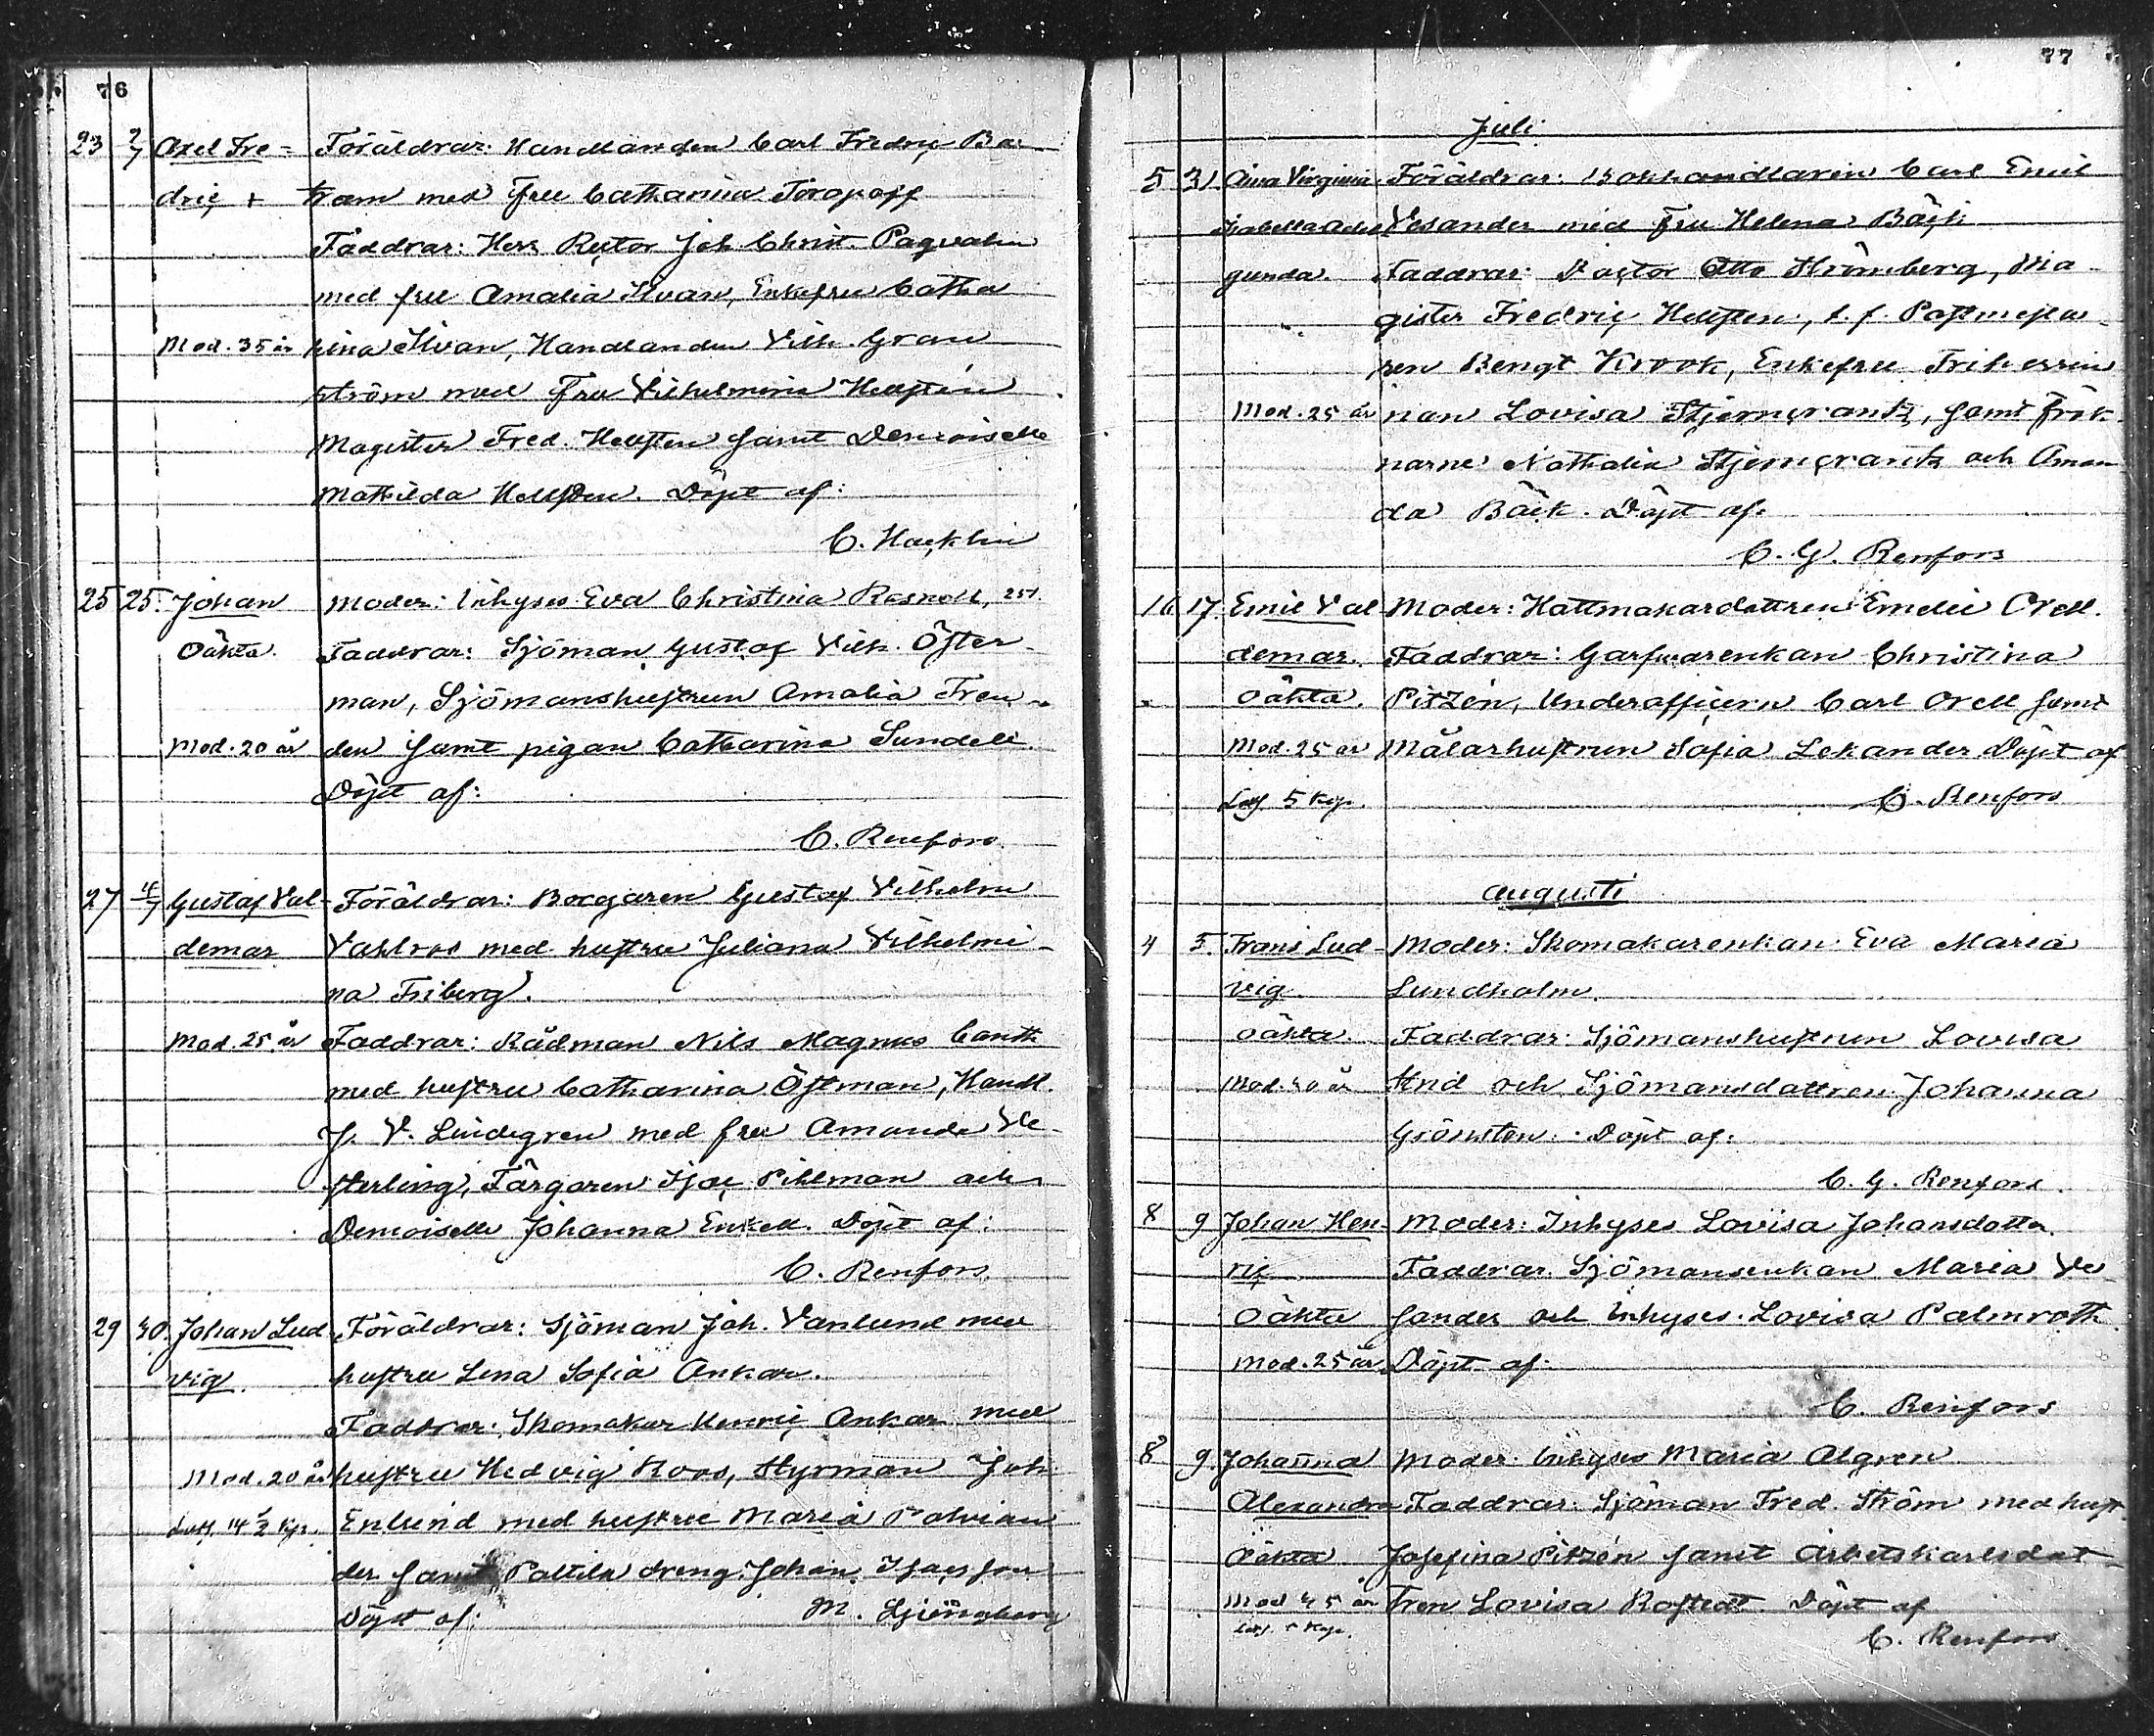 76
23 2/7 Axel Fre= Föräldrar: Handlanden Carl Fredric Ba-
dric + tram med fru Catharina Toropoff
Faddrar: Herr Rector Joh. Christ. Paqvalin
med fru Amalia Ilvan, Enkefru Catha
Mod. 35 år rina Ilvan, Handlanden Vilh. Gran
ström med Fru Vilhelmina Hellsten
Magister Fred. Hellsten samt Demoiselle
Mathilda Hellsten. Döpt af:
C. Hacklin
25 25. Johan Moder: Inhyses Eva Christina
Oäkta. Faddrar: Sjöman Gustaf Vilh. Öster-
man, Sjömanshustrun Amalia Tren-
Mod. 20 år den samt pigan Catharina Sundell.
Döpt af:
C. Renfors.
27 4/7 Gustaf Val- Föräldrar: Borgaren Gustaf Vilhelm
demar Vahlroos med hustru Juliana Vilhelmi-
na Friberg.
Mod. 25 år Faddrar: Rådman Nils Magnus Canth
med hustru Catharina Östman, Handl.
J. V. Lindegren med fru Amanda Ve-
sterling, Färgaren Isac Pihlman och
Demoiselle Johanna Enkell. Döpt af:
C. Renfors.
29 30. Johan Lud Föräldrar: Sjöman Joh. Vanlund med
vig. hustru Lena Sofia Ankar.
Faddrar: Skomakar Henric Ankar med
Mod. 20 år hustru Hedvig Roos, Styrman Joh.
14 1/2 Enlund med hustru Maria Polvian
der samt Paltila dreng Johan Isacsson
Döpt af: M. Ljungberg
77
Juli.
5 31 Aina Virginia Föräldrar: Bokhandlaren Carl Emil
Isabella Vesander med Fru Helena Bäck
gunda. Faddrar: Doctor Otto Strömberg, Ma-
gister Fredric Hellsten, t. f. Postmesta-
ren Bengt Krook, Enkefru Friherrin
Mod. 25 år nan Lovisa Stjerncrantz, samt frök
narne Nathalia Stjerncrantz och Aman
da Bäck. Döpt af:
C. G. Renfors
16. 17. Emil Val Moder: Hattmakardottren Emelie Orell.
demar. Faddrar: Garfvarenkan Christina
Oäkta. Pitzén, Underofficern Carl Orell samt
Mod. 25 år Målarhustrun Sofia Lekander. Döpt af
5 Kop. C. Renfors
Augusti
4 5. Frans Lud- Moder: Skomakarenkan Eva Maria
vig. Lundholm.
Oäkta. Faddrar: Sjömanshustrun Lovisa
Mod. år Strid och Sjömansdottren Johanna
Grönsten. Döpt af:
C. G. Renfors.
8 9 Johan Hen- Moder: Inhyses Lovisa Johansdotter.
ric Faddrar: Sjömansenkan Maria Ve
Oäkta sander och Inhyses Lovisa Palmroth
Mod. 25 år Döpt af:
C. Renfors
8 9. Johanna Moder: Inhyses Maria Algren
Alexandra Faddrar: Sjöman Fred. Ström med hust.
Oäkta Josefina Pitzén samt Arbetskarlsdot
Mod 45 år tren Lovisa Rostedt. Döpt af
C. Renfors.